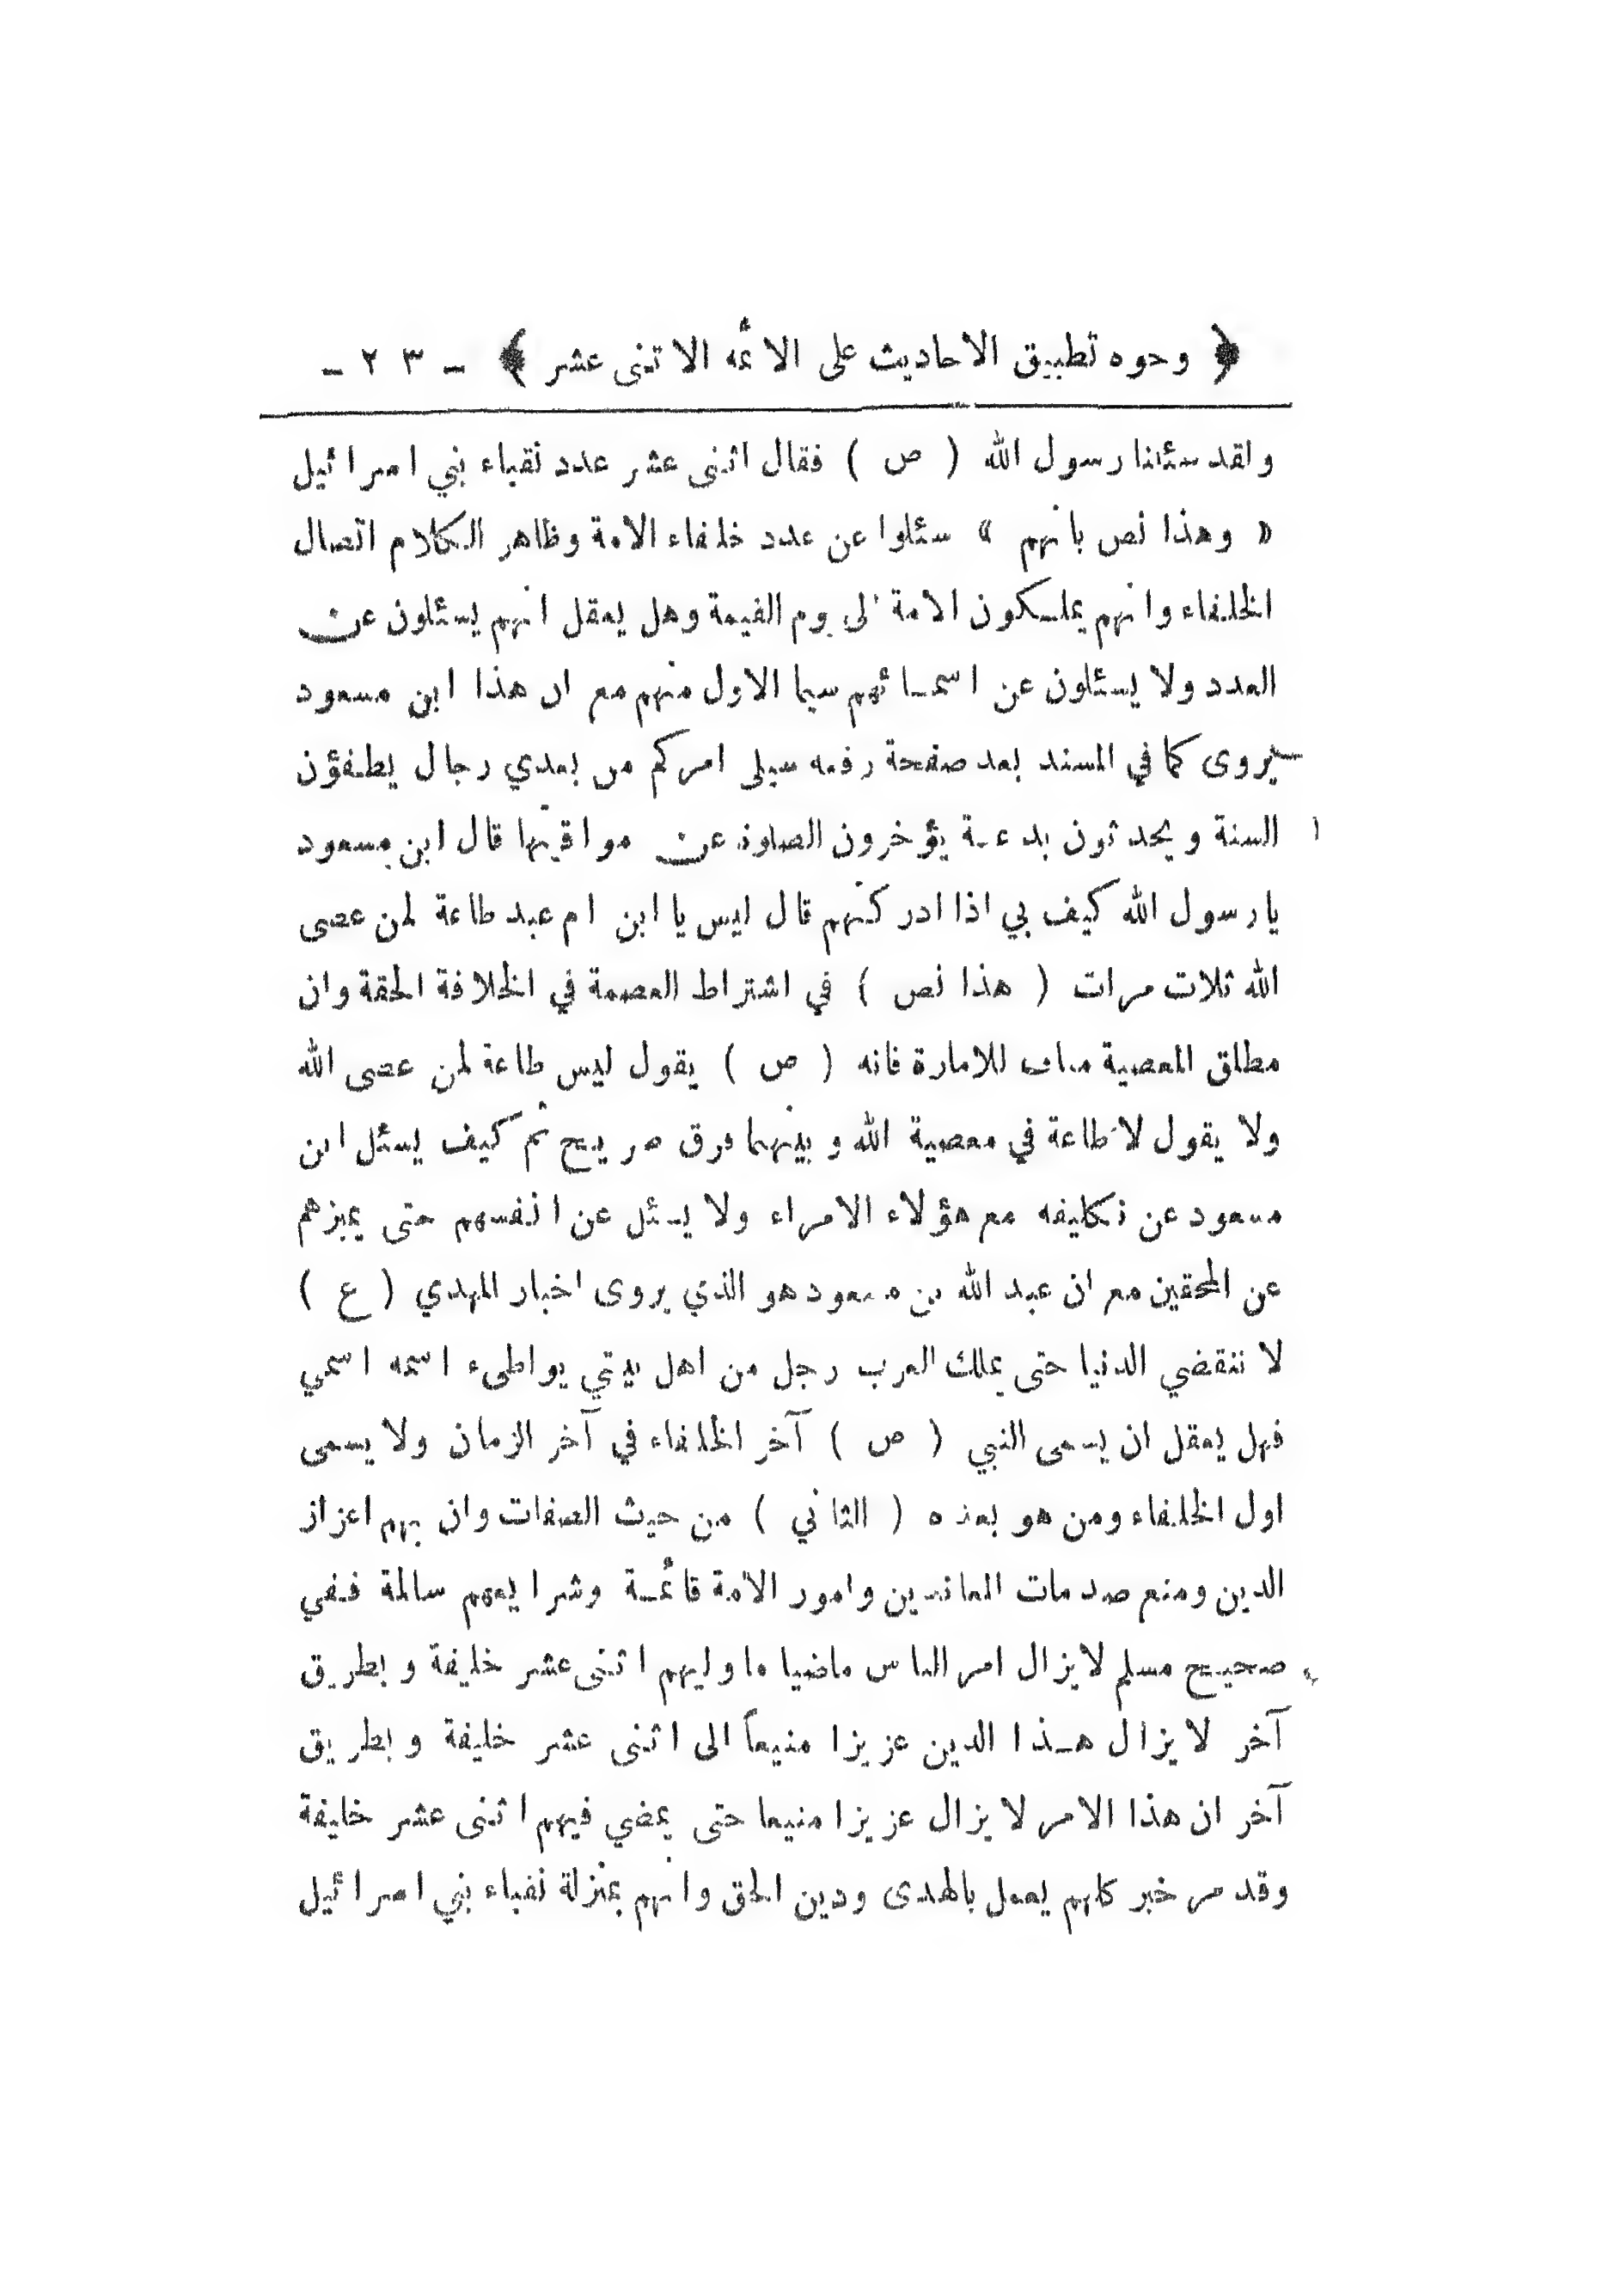 ﴿ وجوه تطبيق الاحاديث على الائمه الاثنى عشر ﴾ ـ ٢٣ ـ
ولقد سئلنا رسول الله ( ص ) فقال اثنى عشر عدد نقباء بني اسرائيل
« وهذا نص بانهم » سئلوا عن عدد خلفاء الامة وظاهر الكلام اتصال
الخلفاء وانهم يملكون الامة الى يوم القيمة وهل يعقل انهم يسئلون عن
العدد ولا يسئلون عن اسمائهم سيما الاول منهم مع ان هذا ابن مسعود
يروى كما في المسند بعد صفحة رفعه سيلى امركم من بعدي رجال يطفؤن
السنة ويحدثون بدعة يؤخرون الصلوة عن مواقيتها قال ابن مسعود
يا رسول الله كيف بي اذا ادركتهم قال ليس يا ابن ام عبد طاعة لمن عصى
الله ثلاث مرات ( هذا نص ) في اشتراط العصمة في الخلافة الحقة وان
مطلق المعصية مناف للامارة فانه ( ص ) يقول ليس طاعة لمن عصى الله
ولا يقول لا طاعة في معصية الله وبينهما فرق صريح ثم كيف يسئل ابن
مسعود عن تكليفه مع هؤلاء الامراء ولا يسئل عن انفسهم حتى يميزهم
عن المحقين مع ان عبد الله بن مسعود هو الذي يروى اخبار المهدي ( ع )
لا تنقضي الدنيا حتى يملك العرب رجل من اهل بيتي يواطىء اسمه اسمي
فهل يعقل ان يسمى النبي ( ص ) آخر الخلفاء في آخر الزمان ولا يسمى
اول الخلفاء ومن هو بعده ( الثاني ) من حيث الصفات وان بهم اعزاز
الدين ومنع صدمات المعاندين وامور الامة قائمة وشرايعهم سالمة ففي
صحيح مسلم لا يزال امر الناس ماضيا ما وليهم اثنى عشر خليفة وبطريق
آخر لا يزال هذا الدين عزيزا منيعاً الى اثنى عشر خليفة وبطريق
آخر ان هذا الامر لا يزال عزيزا منيعا حتى يمضي فيهم اثنى عشر خليفة
وقد مر خبر كلهم يعمل بالهدى ودين الحق وانهم بمنزلة نقباء بني اسرائيل